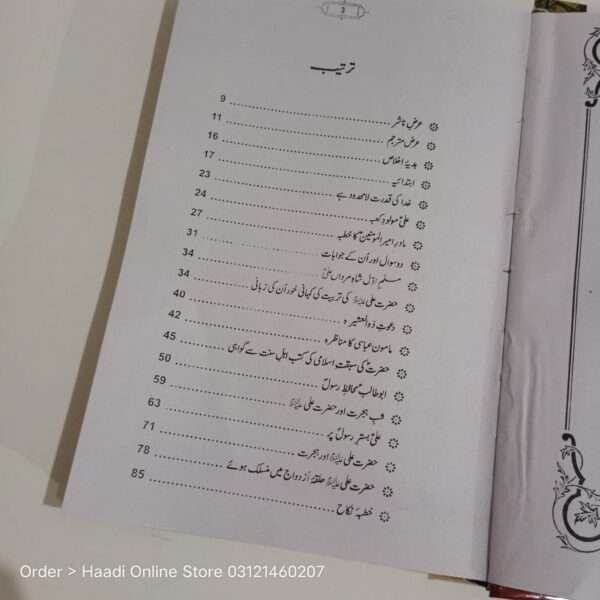 3
ترتیب
عرض ناشر 9
عرض مترجم 11
ہدیۂ اخلاص 16
ابتدائیہ 17
خدا کی قدرت لامحدود ہے 23
علیؑ مولودِ کعبہ 24
مادرِ امیرالمومنینؑ کا خطبہ 27
دو سوال اور اُن کے جوابات 31
مسلمِ اوّل شاہِ مرداں علیؑ 34
حضرت علی علیہ السلام کی تربیت کی کہانی خود اُن کی زبانی 34
دعوتِ ذوالعشیرہ 40
مامون عباسی کا مناظرہ 42
حضرتؑ کی سبقتِ اسلامی کی کتب اہلِ سنت سے گواہی 45
ابوطالبؑ محافظِ رسولؐ 50
شبِ ہجرت اور حضرت علی علیہ السلام 59
علیؑ بسترِ رسولؐ پر 63
حضرت علی علیہ السلام اور ہجرت 71
حضرت علی علیہ السلام حلقۂ اَزدواج میں منسلک ہوئے 78
خطبۂ نکاح 85
Order > Haadi Online Store 03121460207